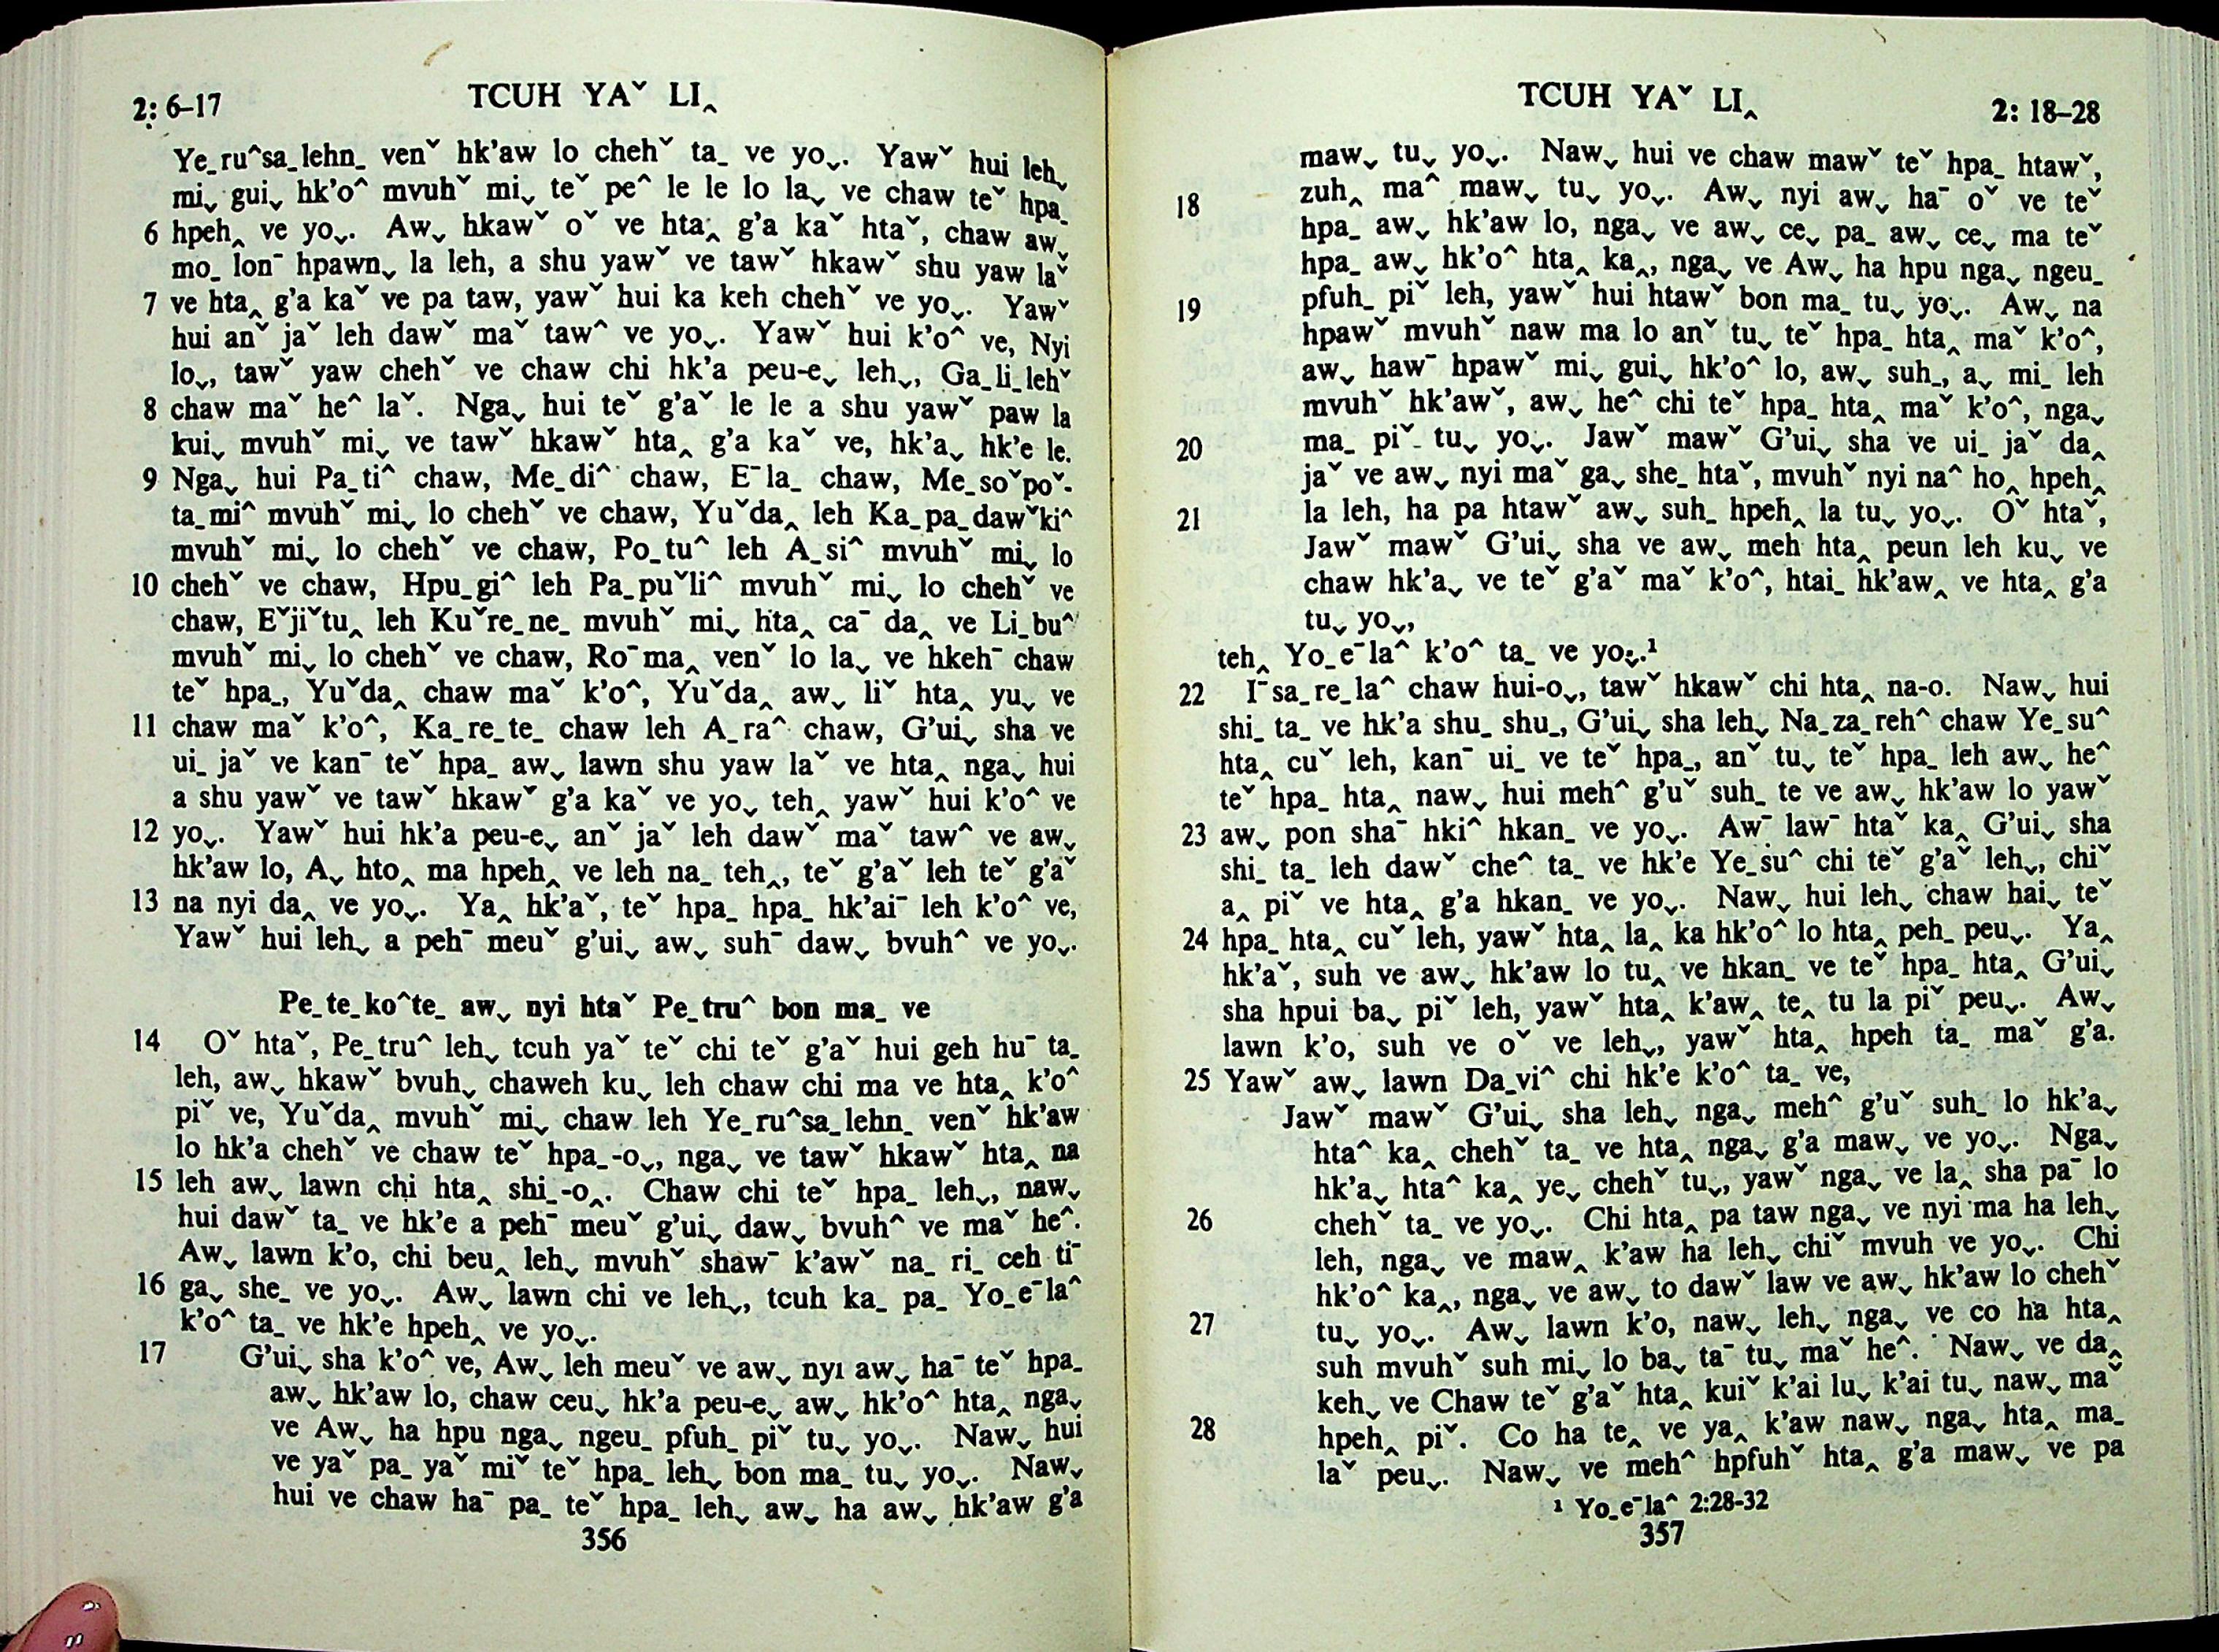 2: 6–17
TCUH YAˇ LI‸
Ye_ru^sa_lehn_ venˇ hk'aw lo chehˇ ta_ ve yoˬ. Yawˇ hui lehˬ
miˬ guiˬ hk'o^ mvuhˇ miˬ teˇ pe^ le le lo laˬ ve chaw teˇ hpa_
6 hpeh‸ ve yoˬ. Awˬ hkawˇ oˇ ve hta‸ g'a kaˇ htaˇ, chaw awˬ
mo_ lon¯ hpawnˬ la leh, a shu yawˇ ve tawˇ hkawˇ shu yaw laˇ
7 ve hta‸ g'a kaˇ ve pa taw, yawˇ hui ka keh chehˇ ve yoˬ. Yawˇ
hui anˇ jaˇ leh dawˇ maˇ taw^ ve yoˬ. Yawˇ hui k'o^ ve, Nyi
loˬ, tawˇ yaw chehˇ ve chaw chi hk'a peu-eˬ lehˬ, Ga_li_lehˇ
8 chaw maˇ he^ laˇ. Ngaˬ hui teˇ g'aˇ le le a shu yawˇ paw la
kuiˬ mvuhˇ miˬ ve tawˇ hkawˇ hta‸ g'a kaˇ ve, hk'aˬ hk'e le.
9 Ngaˬ hui Pa_ti^ chaw, Me_di^ chaw, E¯la_ chaw, Me_soˇpoˇ-
ta_mi^ mvuhˇ miˬ lo chehˇ ve chaw, Yuˇda‸ leh Ka_pa_dawˇki^
mvuhˇ miˬ lo chehˇ ve chaw, Po_tu^ leh A_si^ mvuhˇ miˬ lo
10 chehˇ ve chaw, Hpu_gi^ leh Pa_puˇli^ mvuhˇ miˬ lo chehˇ ve
chaw, Eˇjiˇtu‸ leh Kuˇre_ne_ mvuhˇ miˬ hta‸ ca¯ da‸ ve Li_bu^
mvuhˇ miˬ lo chehˇ ve chaw, Ro¯ma‸ venˇ lo laˬ ve hkeh¯ chaw
teˇ hpa_, Yuˇda‸ chaw maˇ k'o^, Yuˇda‸ awˬ liˇ hta‸ yuˬ ve
11 chaw maˇ k'o^, Ka_re_te_ chaw leh A_ra^ chaw, G'uiˬ sha ve
ui_ jaˇ ve kan¯ teˇ hpa_ awˬ lawn shu yaw laˇ ve hta‸ ngaˬ hui
a shu yawˇ ve tawˇ hkawˇ g'a kaˇ ve yoˬ teh‸ yawˇ hui k'o^ ve
12 yoˬ. Yawˇ hui hk'a peu-eˬ anˇ jaˇ leh dawˇ maˇ taw^ ve awˬ
hk'aw lo, Aˬ hto‸ ma hpeh‸ ve leh na_ teh‸, teˇ g'aˇ leh teˇ g'aˇ
13 na nyi da‸ ve yoˬ. Ya‸ hk'aˇ, teˇ hpa_ hpa_ hk'ai¯ leh k'o^ ve,
Yawˇ hui lehˬ a peh¯ meuˇ g'uiˬ awˬ suh¯ dawˬ bvuh^ ve yoˬ.
Pe_te_ko^te_ awˬ nyi htaˇ Pe_tru^ bon ma_ ve
14 Oˇ htaˇ, Pe_tru^ lehˬ tcuh yaˇ teˇ chi teˇ g'aˇ hui geh hu¯ ta_
leh, awˬ hkawˇ bvuhˬ chaweh kuˬ leh chaw chi ma ve hta‸ k'o^
piˇ ve, Yuˇda‸ mvuhˇ miˬ chaw leh Ye_ru^sa_lehn_ venˇ hk'aw
lo hk'a chehˇ ve chaw teˇ hpa_-oˬ, ngaˬ ve tawˇ hkawˇ hta‸ na
15 leh awˬ lawn chi hta‸ shi_-o‸. Chaw chi teˇ hpa_ lehˬ, nawˬ
hui dawˇ ta_ ve hk'e a peh¯ meuˇ g'uiˬ dawˬ bvuh^ ve maˇ he^.
Awˬ lawn k'o, chi beu‸ lehˬ mvuhˇ shaw¯ k'awˇ na_ ri_ ceh ti¯
16 gaˬ she_ ve yoˬ. Awˬ lawn chi ve lehˬ, tcuh ka_ pa_ Yo_e¯la^
k'o^ ta_ ve hk'e hpeh‸ ve yoˬ.
17 G'uiˬ sha k'o^ ve, Awˬ leh meuˇ ve awˬ nyi awˬ ha¯ teˇ hpa_
awˬ hk'aw lo, chaw ceuˬ hk'a peu-eˬ awˬ hk'o^ hta‸ ngaˬ
ve Awˬ ha hpu ngaˬ ngeu_ pfuh_ piˇ tuˬ yoˬ. Nawˬ hui
ve yaˇ pa_ yaˇ miˇ teˇ hpa_ lehˬ bon ma_ tuˬ yoˬ. Nawˬ
hui ve chaw ha¯ pa_ teˇ hpa_ lehˬ awˬ ha awˬ hk'aw g'a
356
TCUH YAˇ LI‸
2: 18–28
mawˬ tuˬ yoˬ. Nawˬ hui ve chaw mawˇ teˇ hpa_ htawˇ,
18 zuh‸ ma^ mawˬ tuˬ yoˬ. Awˬ nyi awˬ ha¯ oˇ ve teˇ
hpa_ awˬ hk'aw lo, ngaˬ ve awˬ ceˬ pa_ awˬ ceˬ ma teˇ
hpa_ awˬ hk'o^ hta‸ ka‸, ngaˬ ve Awˬ ha hpu ngaˬ ngeu_
19 pfuh_ piˇ leh, yawˇ hui htawˇ bon ma_ tuˬ yoˬ. Awˬ na
hpawˇ mvuhˇ naw ma lo anˇ tuˬ teˇ hpa_ hta‸ maˇ k'o^,
awˬ haw¯ hpawˇ miˬ guiˬ hk'o^ lo, awˬ suh_, aˬ mi_ leh
mvuhˇ hk'awˇ, awˬ he^ chi teˇ hpa_ hta‸ maˇ k'o^, ngaˬ
20 ma_ piˇ tuˬ yoˬ. Jawˇ mawˇ G'uiˬ sha ve ui_ jaˇ da‸
jaˇ ve awˬ nyi maˇ gaˬ she_ htaˇ, mvuhˇ nyi na^ ho‸ hpeh‸
21 la leh, ha pa htawˇ awˬ suh_ hpeh‸ la tuˬ yoˬ. Oˇ htaˇ,
Jawˇ mawˇ G'uiˬ sha ve awˬ meh hta‸ peun leh kuˬ ve
chaw hk'aˬ ve teˇ g'aˇ maˇ k'o^, htai_ hk'aw‸ ve hta‸ g'a
tuˬ yoˬ,
teh‸ Yo_e¯la^ k'o^ ta_ ve yoˬ.¹
22 I¯sa_re_la^ chaw hui-oˬ, tawˇ hkawˇ chi hta‸ na-o. Nawˬ hui
shi_ ta_ ve hk'a shu_ shu_, G'uiˬ sha lehˬ Na_za_reh^ chaw Ye_su^
hta‸ cuˇ leh, kan¯ ui_ ve teˇ hpa_, anˇ tuˬ teˇ hpa_ leh awˬ he^
teˇ hpa_ hta‸ nawˬ hui meh^ g'uˇ suh_ te ve awˬ hk'aw lo yawˇ
23 awˬ pon sha¯ hki^ hkan_ ve yoˬ. Aw¯ law¯ htaˇ ka‸ G'uiˬ sha
shi_ ta_ leh dawˇ che^ ta_ ve hk'e Ye_su^ chi teˇ g'aˇ lehˬ, chiˇ
a‸ piˇ ve hta‸ g'a hkan_ ve yoˬ. Nawˬ hui lehˬ chaw haiˬ teˇ
24 hpa_ hta‸ cuˇ leh, yawˇ hta‸ la‸ ka hk'o^ lo hta‸ peh_ peuˬ. Ya‸
hk'aˇ, suh ve awˬ hk'aw lo tu‸ ve hkan_ ve teˇ hpa_ hta‸ G'uiˬ
sha hpui baˬ piˇ leh, yawˇ hta‸ k'aw‸ te‸ tu la piˇ peuˬ. Awˬ
lawn k'o, suh ve oˇ ve lehˬ, yawˇ hta‸ hpeh ta_ maˇ g'a.
25 Yawˇ awˬ lawn Da_vi^ chi hk'e k'o^ ta_ ve,
Jawˇ mawˇ G'uiˬ sha lehˬ ngaˬ meh^ g'uˇ suh_ lo hk'aˬ
hta^ ka‸ chehˇ ta_ ve hta‸ ngaˬ g'a mawˬ ve yoˬ. Ngaˬ
hk'aˬ hta^ ka‸ yeˬ chehˇ tuˬ, yawˇ ngaˬ ve la‸ sha pa¯ lo
26 chehˇ ta_ ve yoˬ. Chi hta‸ pa taw ngaˬ ve nyi ma ha lehˬ
leh, ngaˬ ve maw‸ k'aw ha lehˬ chiˇ mvuh ve yoˬ. Chi
hk'o^ ka‸, ngaˬ ve awˬ to dawˇ law ve awˬ hk'aw lo chehˇ
27 tuˬ yoˬ. Awˬ lawn k'o, nawˬ lehˬ ngaˬ ve co ha hta‸
suh mvuhˇ suh miˬ lo baˬ ta¯ tuˬ maˇ he^. Nawˬ ve da‸
kehˬ ve Chaw teˇ g'aˇ hta‸ kuiˇ k'ai luˬ k'ai tuˬ nawˬ maˇ
28 hpeh‸ piˇ. Co ha te‸ ve ya‸ k'aw nawˬ ngaˬ hta‸ ma_
laˇ peuˬ. Nawˬ ve meh^ hpfuhˇ hta‸ g'a mawˬ ve pa
¹ Yo_e¯la^ 2:28-32
357